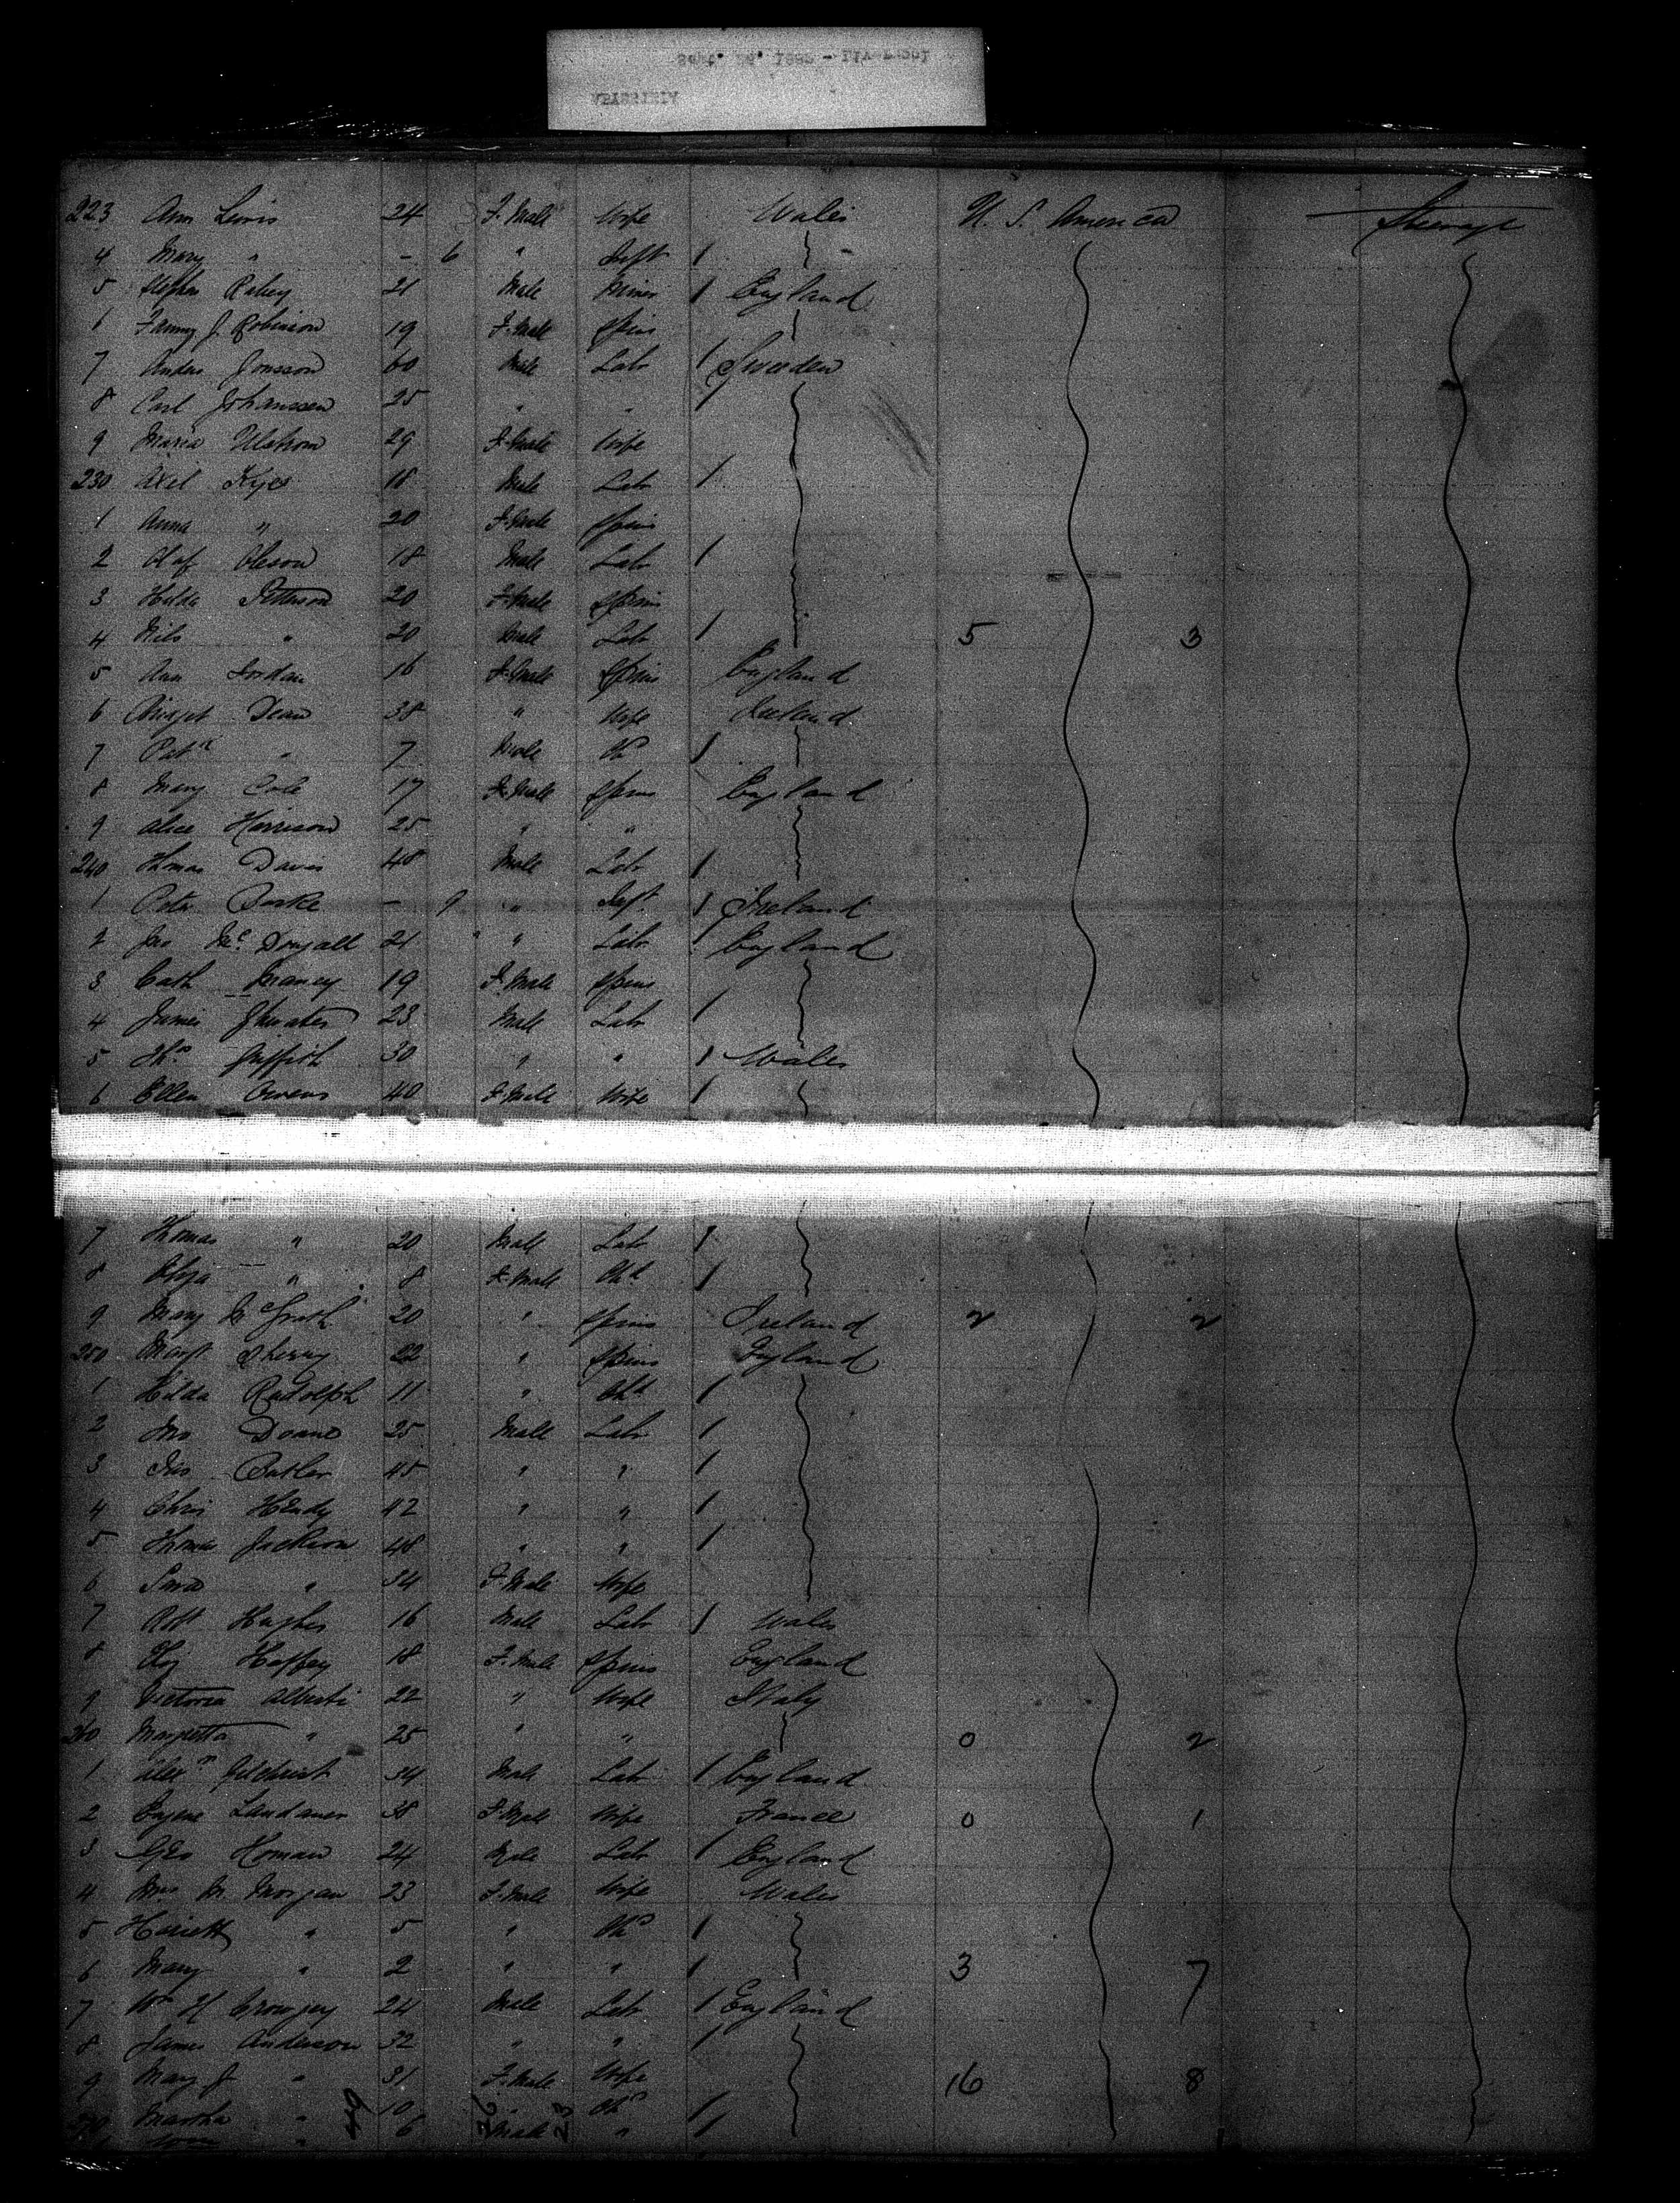 223 Ann Lewis 24 F. Male Wife Wales U. S. America Steerage
4 Mary " - 6 " Inft 1
5 Stephen Rabey 21 Male Miner 1 England
6 Fanny J. Robinson 19 F. Male Spins
7 Anders Jonsson 60 Male Labr 1 Sweden
8 Carl Johanssen 25 " " 1
9 Maria 29 F. Male Wife
230 Axel 18 Male Labr 1
1 Anna " 20 F. Male Spins
2 Olaf Oleson 18 Male Labr 1
3 Hilda Petterson 20 F. Male Spins
4 Nils " 20 Male Labr 1 5 3
5 Ann Jordan 16 F. Male Spins England
6 Bridget Dean 38 " Wife Ireland
7 Patk " 7 Male Ch 1
8 Mary Cole 17 F. Male Spins England
9 Alice Harrison 25 " "
240 Thomas Davis 48 Male Labr 1
1 Peter Burke - 9 " Inft 1 Ireland
2 Jno McDougall 21 " Labr 1 England
3 Cath 19 F. Male Spins
4 James Thwaites 23 Male Labr 1
5 Thos Griffith 30 " " 1 Wales
6 Ellen Owens 40 F. Male Wife 1
7 Thomas " 20 Male Labr 1
8 Eliza " 8 F. Male Chd 1
9 Mary McGrath 20 " Spins Ireland 2 2
250 Margt Sherry 22 " Spins England
1 Hilda Rudolph 11 " Chd 1
2 Jno Doane 25 Male Labr 1
3 Jno Butler 45 " " 1
4 Chris Hendy 42 " " 1
5 Thomas Jackson 48 " " 1
6 Sara " 34 F. Male Wife
7 Robt Hughes 16 Male Labr 1 Wales
8 Haffey 18 F. Male Spins England
9 Victoria Alberti 22 " Wife Italy
260 Margretta " 25 " " 0 2
1 Alexr Gilchrist 34 Male Labr 1 England
2 Eugene Landauer 38 F. Male Wife France 0 1
3 Geo Homan 24 Male Labr 1 England
4 Mrs M. Morgan 23 F. Male Wife Wales
5 Harriett " 5 " Chd 1
6 Mary " 2 " " 1 3 7
7 Wm H 24 Male Labr 1 England
8 James Anderson 32 " " 1
9 Mary J " 31 F. Male Wife 16 8
270 Martha " 10 " Chd 1
" 6 Male " 1